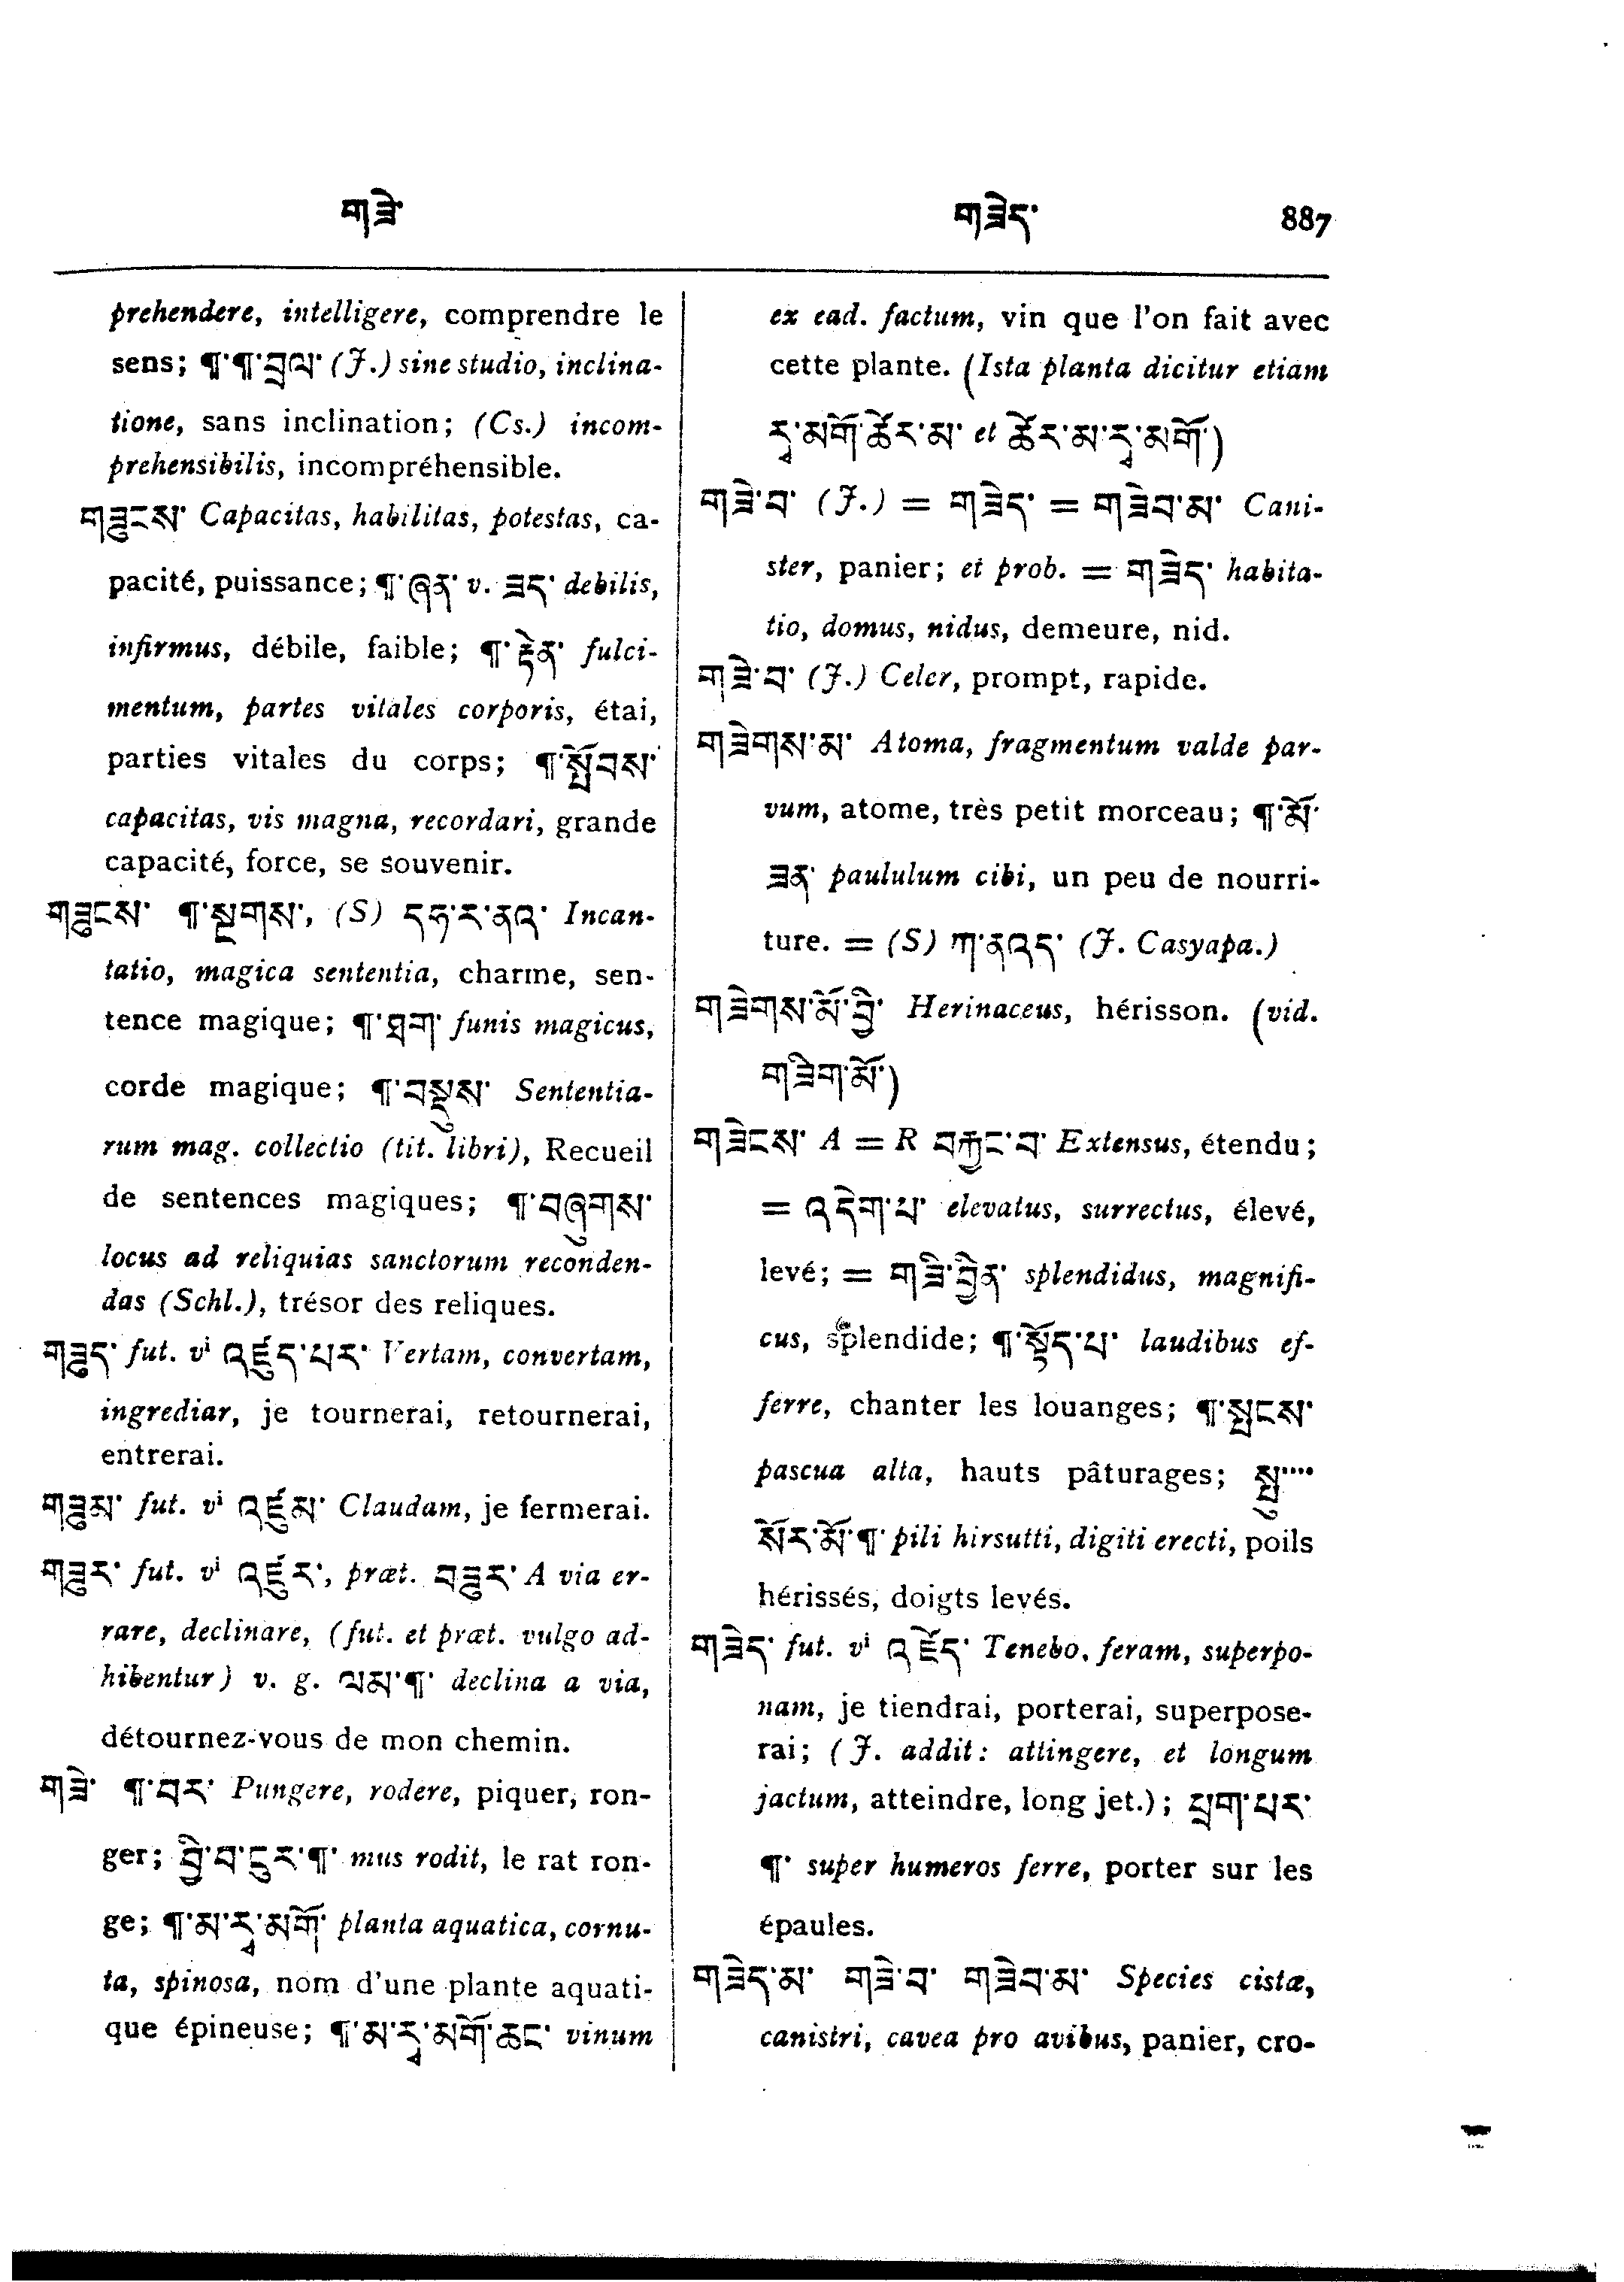 གཟེ་ གཟེད་ 887
prehendere, intelligere, comprendre le
sens; ¶་¶་བྲལ་ (J.) sine studio, inclina-
tione, sans inclination; (Cs.) incom-
prehensibilis, incompréhensible.
གཟུངས་ Capacitas, habilitas, potestas, ca-
pacité, puissance; ¶་ཞན་ v. ཟད་ debilis,
infirmus, débile, faible; ¶་རྟེན་ fulci-
mentum, partes vitales corporis, étai,
parties vitales du corps; ¶་སྤོབས་
capacitas, vis magna, recordari, grande
capacité, force, se souvenir.
གཟུངས་ ¶་སྔགས་, (S) དཧ་ར་ནའ་ Incan-
tatio, magica sententia, charme, sen-
tence magique; ¶་ཐག་ funis magicus,
corde magique; ¶་བསྡུས་ Sententia-
rum mag. collectio (tit. libri), Recueil
de sentences magiques; ¶་བཞུགས་
locus ad reliquias sanctorum reconden-
das (Schl.), trésor des reliques.
གཟུད་ fut. vi འཛུད་པར་ Vertam, convertam,
ingrediar, je tournerai, retournerai,
entrerai.
གཟུམ་ fut. vi འཛུམ་ Claudam, je fermerai.
གཟུར་ fut. vi འཛུར་, præt. བཟུར་ A via er-
rare, declinare, (fut. et præt. vulgo ad-
hibentur) v. g. ལམ་¶་ declina a via,
détournez-vous de mon chemin.
གཟེ་ ¶་བར་ Pungere, rodere, piquer, ron-
ger; བྱི་བ་ངུར་¶་ mus rodit, le rat ron-
ge; ¶་མ་རྭ་མགོ་ planta aquatica, cornu-
ta, spinosa, nom d'une plante aquati-
que épineuse; ¶་མ་རྭ་མགོ་ཆང་ vinum
ex ead. factum, vin que l'on fait avec
cette plante. (Ista planta dicitur etiam
རྭ་མགོ་ཚེར་མ་ et ཚེར་མ་རྭ་མགོ་)
གཟེ་བ་ (J.) = གཟེད་ = གཟེབ་མ་ Cani-
ster, panier; et prob. = གཟེད་ habita-
tio, domus, nidus, demeure, nid.
གཟེ་བ་ (J.) Celer, prompt, rapide.
གཟེགས་མ་ Atoma, fragmentum valde par-
vum, atome, très petit morceau; ¶་མོ་
ཟན་ paululum cibi, un peu de nourri-
ture. = (S) ཀ་ནའད་ (J. Casyapa.)
གཟེགས་མོ་བྱི་ Herinaceus, hérisson. (vid.
གཟིག་མོ་)
གཟེངས་ A = R བརྐྱང་བ་ Extensus, étendu;
= འདེག་པ་ elevatus, surrectus, élevé,
levé; = གཟི་བྱིན་ splendidus, magnifi-
cus, splendide; ¶་སྟོད་པ་ laudibus ef-
ferre, chanter les louanges; ¶་སྤངས་
pascua alta, hauts pâturages; སྤུ་···
སོར་མོ་¶་ pili hirsutti, digiti erecti, poils
hérissés, doigts levés.
གཟེད་ fut. vi འཛེད་ Tenebo, feram, superpo-
nam, je tiendrai, porterai, superpose-
rai; (J. addit: attingere, et longum
jactum, atteindre, long jet.); ཕྲག་པར་
¶་ super humeros ferre, porter sur les
épaules.
གཟེད་མ་ གཟེ་བ་ གཟེབ་མ་ Species cistæ,
canistri, cavea pro avibus, panier, cro-